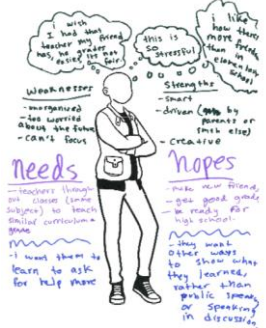 i wish
I had that
teacher my friend
has, he grades
easier, its not
fair.
this is
so
stressful!
i like
how theres
more freedom
than in
elementary
school
Weaknesses
- unorganized
- too worried
about the future
- can't focus
Strengths
- smart
- driven (by
parents or
smth else)
- creative
needs
- teachers through
out classes (same
subject) to teach
similar curriculum +
grade
- I want them to
learn to ask
for help more
hopes
- make new friends
- get good grades
- be ready for
high school.
- they want
other ways
to show what
they learned,
rather than
public speaking
or speaking
in discussion.